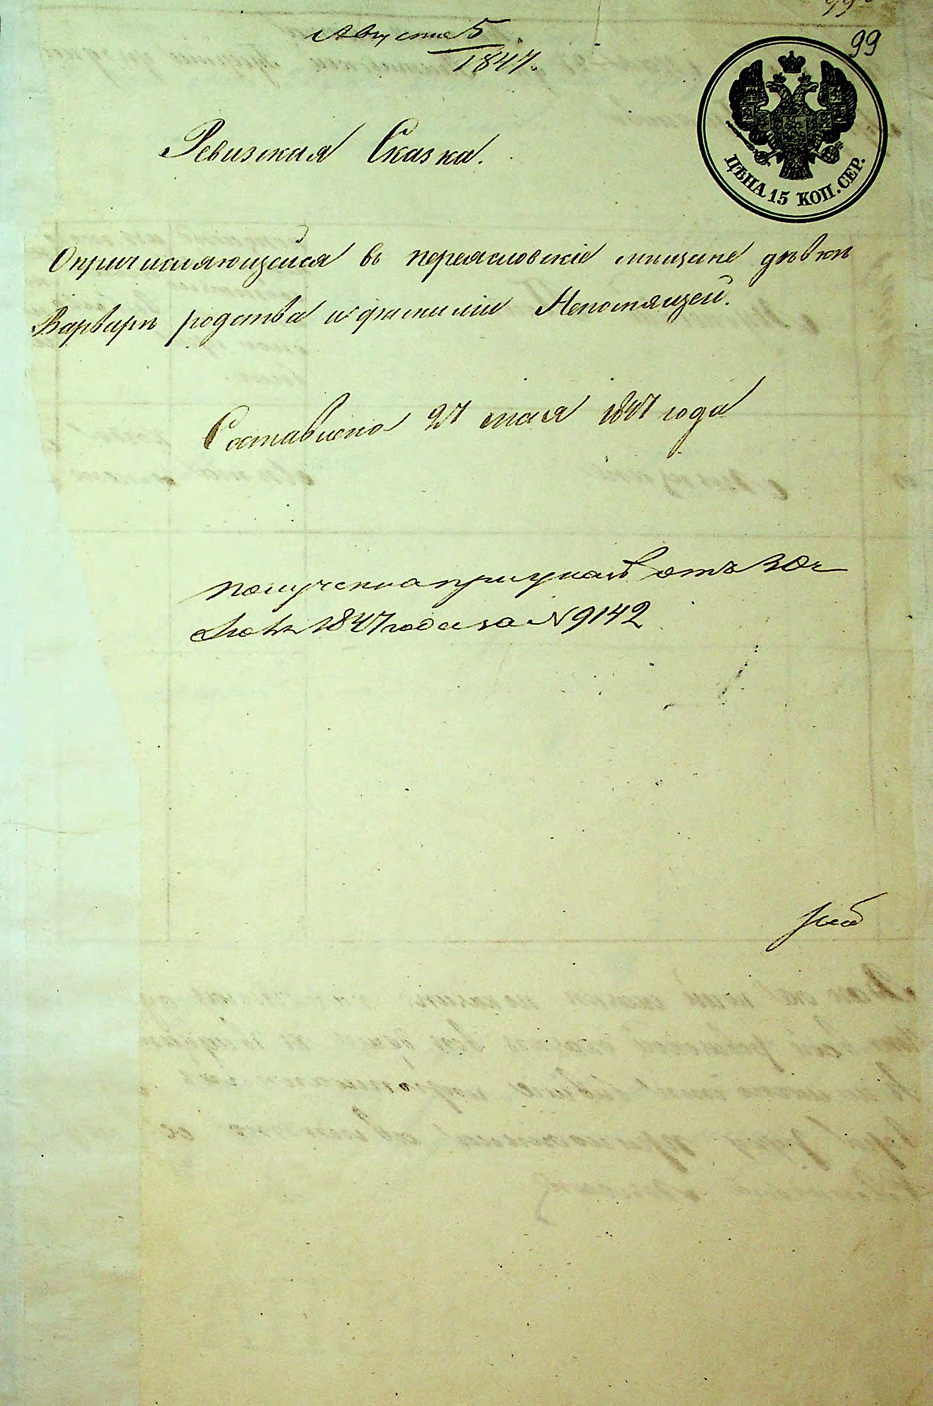 99
Августа 5
1847.
ЦѢНА 15 КОП. СЕР.
Ревизская Сказка.
О причисляющейся въ переясловскіе мещане дѣвкѣ
Варварѣ родства и фамиліи Непомнящей.
Составлена 27 мая 1847 года
получена при указѣ отъ 30г
1847 года за № 9142